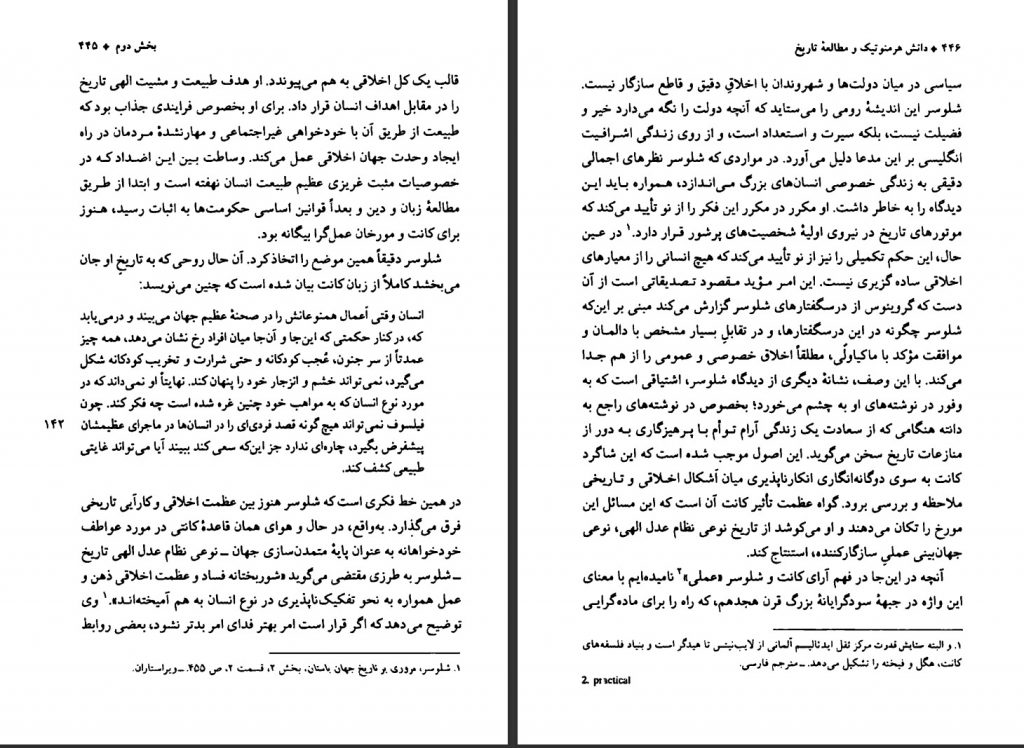 بخش دوم ❖ ۴۴۵
قالب یک کل اخلاقی به هم می‌پیوندد. او هدف طبیعت و مشیت الهی تاریخ
را در مقابل اهداف انسان قرار داد. برای او بخصوص فرایندی جذاب بود که
طبیعت از طریق آن با خودخواهی غیراجتماعی و مهارنشدهٔ مردمان در راه
ایجاد وحدت جهان اخلاقی عمل می‌کند. وساطت بین این اضداد که در
خصوصیات مثبت غریزی عظیم طبیعت انسان نهفته است و ابتدا از طریق
مطالعهٔ زبان و دین و بعداً قوانین اساسی حکومت‌ها به اثبات رسید، هنوز
برای کانت و مورخان عمل‌گرا بیگانه بود.
شلوسر دقیقاً همین موضع را اتخاذ کرد. آن حال روحی که به تاریخِ او جان
می‌بخشد کاملاً از زبان کانت بیان شده است که چنین می‌نویسد:
انسان وقتی اَعمال همنوعانش را در صحنهٔ عظیم جهان می‌بیند و درمی‌یابد
که، در کنار حکمتی که این‌جا و آن‌جا میان افراد رخ نشان می‌دهد، همه چیز
عمدتاً از سر جنون، عُجب کودکانه و حتی شرارت و تخریب کودکانه شکل
می‌گیرد، نمی‌تواند خشم و انزجار خود را پنهان کند. نهایتاً او نمی‌داند که در
مورد نوع انسان که به مواهب خود چنین غره شده است چه فکر کند. چون
فیلسوف نمی‌تواند هیچ گونه قصد فردی‌ای را در انسان‌ها در ماجرای عظیمشان
۱۴۲
پیشفرض بگیرد، چاره‌ای ندارد جز این‌که سعی کند ببیند آیا می‌تواند غایتی
طبیعی کشف کند.
در همین خط فکری است که شلوسر هنوز بین عظمت اخلاقی و کارآیی تاریخی
فرق می‌گذارد. به‌واقع، در حال و هوای همان قاعدهٔ کانتی در مورد عواطف
خودخواهانه به عنوان پایهٔ متمدن‌سازی جهان ــ نوعی نظام عدل الهی تاریخ
ــ شلوسر به طرزی مقتضی می‌گوید «شوربختانه فساد و عظمت اخلاقی ذهن و
عمل همواره به نحو تفکیک‌ناپذیری در نوع انسان به هم آمیخته‌اند».۱ وی
توضیح می‌دهد که اگر قرار است امر بهتر فدای امر بدتر نشود، بعضی روابط
۱. شلوسر، مروری بر تاریخ جهان باستان، بخش ۲، قسمت ۲، ص ۴۵۵. ــ ویراستاران.
۴۴۶ ❖ دانش هرمنوتیک و مطالعهٔ تاریخ
سیاسی در میان دولت‌ها و شهروندان با اخلاقِ دقیق و قاطع سازگار نیست.
شلوسر این اندیشهٔ رومی را می‌ستاید که آنچه دولت را نگه می‌دارد خیر و
فضیلت نیست، بلکه سیرت و استعداد است، و از روی زندگی اشرافیت
انگلیسی بر این مدعا دلیل می‌آورد. در مواردی که شلوسر نظرهای اجمالی
دقیقی به زندگی خصوصی انسان‌های بزرگ می‌اندازد، همواره باید این
دیدگاه را به خاطر داشت. او مکرر در مکرر این فکر را از نو تأیید می‌کند که
موتورهای تاریخ در نیروی اولیهٔ شخصیت‌های پرشور قرار دارد.۱ در عین
حال، این حکم تکمیلی را نیز از نو تأیید می‌کند که هیچ انسانی را از معیارهای
اخلاقی ساده گزیری نیست. این امر مؤید مقصود تصدیقاتی است از آن
دست که گروینوس از درسگفتارهای شلوسر گزارش می‌کند مبنی بر این‌که
شلوسر چگونه در این درسگفتارها، و در تقابلِ بسیار مشخص با دالمان و
موافقت مؤکد با ماکیاولّی، مطلقاً اخلاق خصوصی و عمومی را از هم جدا
می‌کند. با این وصف، نشانهٔ دیگری از دیدگاه شلوسر، اشتیاقی است که به
وفور در نوشته‌های او به چشم می‌خورد؛ بخصوص در نوشته‌های راجع به
دانته هنگامی که از سعادت یک زندگی آرام توأم با پرهیزگاری به دور از
منازعات تاریخ سخن می‌گوید. این اصول موجب شده است که این شاگرد
کانت به سوی دوگانه‌انگاری انکارناپذیری میان اَشکال اخلاقی و تاریخی
ملاحظه و بررسی برود. گواه عظمت تأثیر کانت آن است که این مسائل این
مورخ را تکان می‌دهند و او می‌کوشد از تاریخ نوعی نظام عدل الهی، نوعی
جهان‌بینی عملیِ سازگارکننده، استنتاج کند.
آنچه در این‌جا در فهم آرای کانت و شلوسر «عملی»۲ نامیده‌ایم با معنای
این واژه در جبههٔ سودگرایانهٔ بزرگ قرن هجدهم، که راه را برای ماده‌گرایی
۱. و البته ستایش قدرت مرکز ثقل ایدئالیسم آلمانی از لایب‌نیتس تا هیدگر است و بنیاد فلسفه‌های
کانت، هگل و فیخته را تشکیل می‌دهد. ــ مترجم فارسی.
2. practical